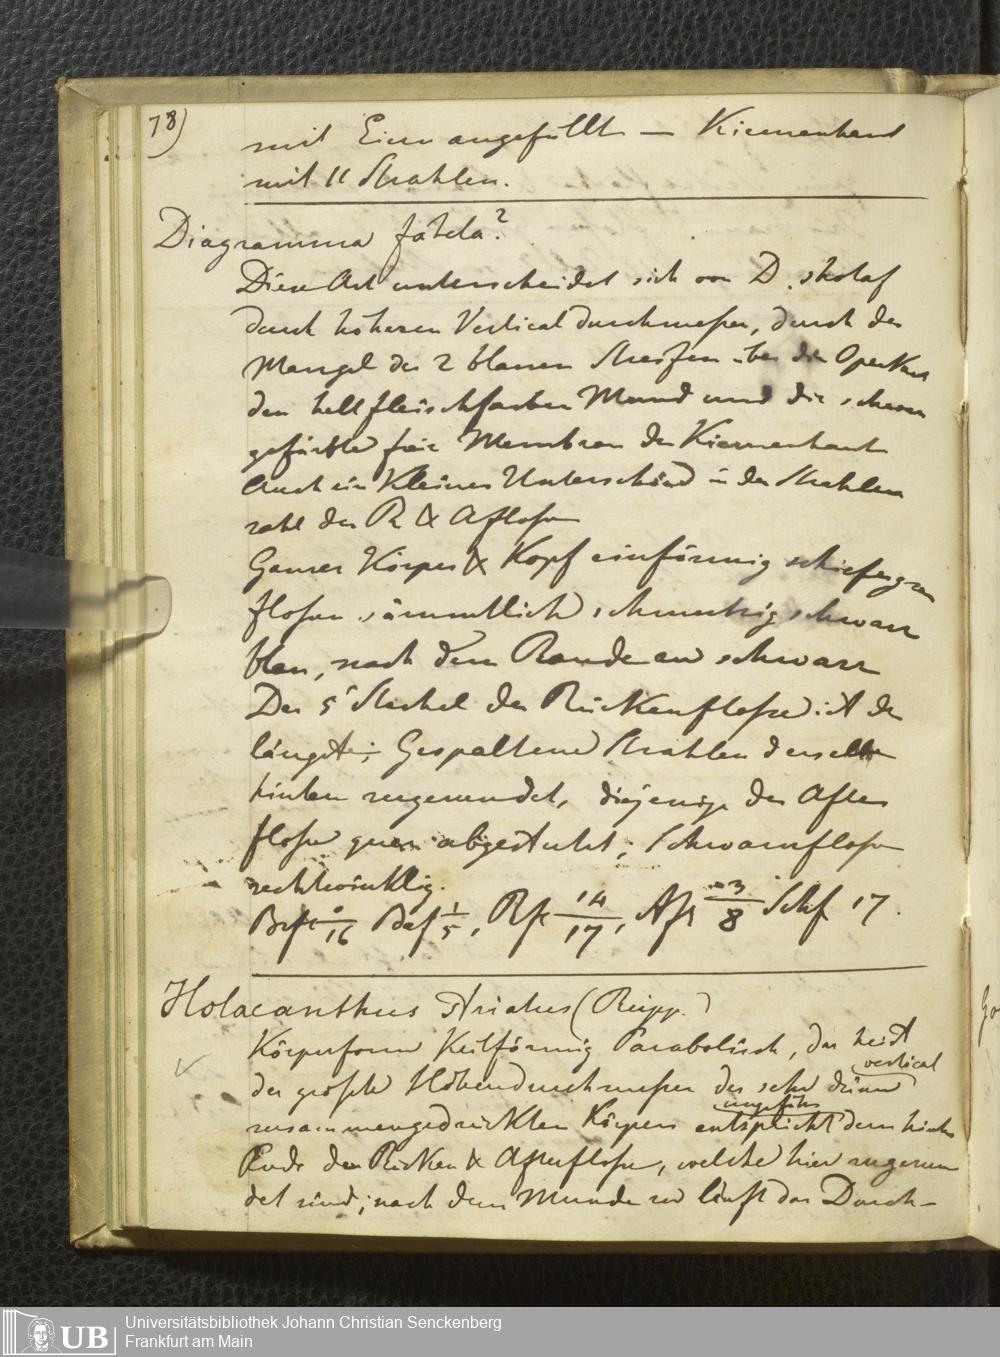 78)
mit Eiern angefüllt — Kiemenhaut
mit 11 Strahlen.
Diagramma fatela?
Diese Art unterscheidet sich von D. shotaf
durch höheren Vertical durchmeßer, durch den
Mangel der 2 blauen Streifen über die Operkeln
den hell fleischfarben Mund und die schwarz
gefärbte freie Membran der Kiemenhaut
Auch ein Kleiner Unterschied in der Strahlen
zahl der R & Afloßen
Ganzer Körper & Kopf einförmig schiefergrau
floßen sämmtlich schmutzig schwarz
blau, nach dem Rande zu schwarz
Der 5 Stachel der Rückenfloße ist der
längste; Gespaltene Strahlen derselben
hinten zugerundet, diejenige der After
floße quer abgestutzt; Schwanzfloße
rechtwinklig.
Brfl 0/16 Bafl 1/5, Rfl 14/17, Afl 3/8 Schf 17.
Holacanthus striatus (Rüpp.)
Körperform Keilförmig Parabolisch, das heist
vertical
der größte Höhendurchmeßer des sehr dünn
ungefähr
zusammengedrückten Körpers entspricht dem hintern
Ende der Rücken & Afterfloße, welche hier zugerun
det sind; nach dem Munde zu läuft das Durch-
Go
UB
Universitätsbibliothek Johann Christian Senckenberg
Frankfurt am Main